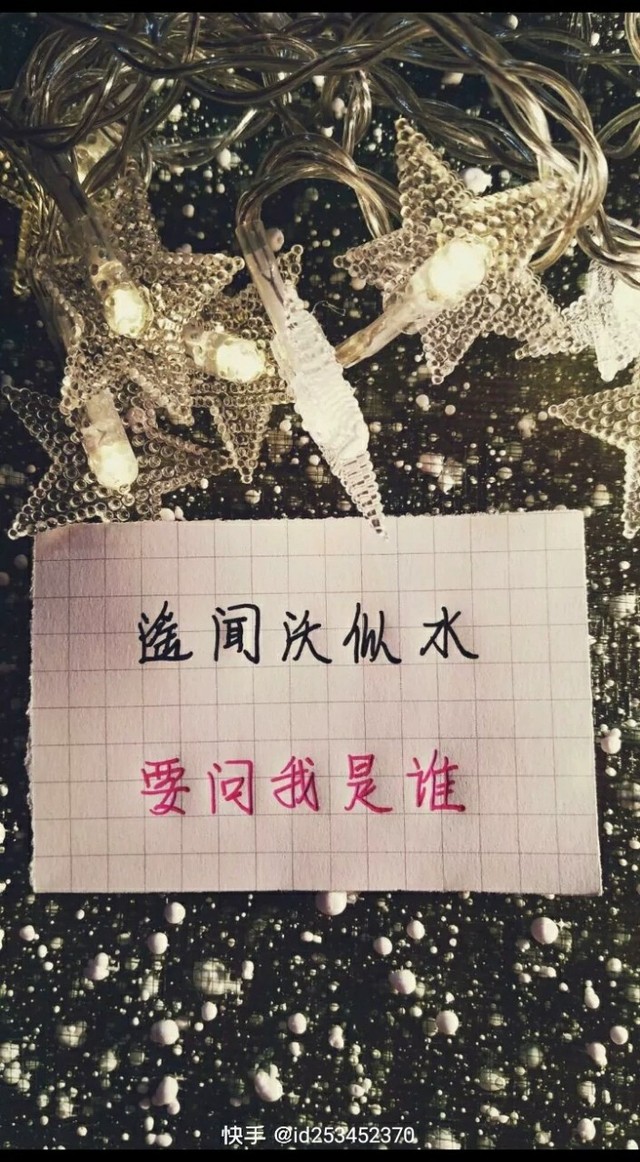 遥闻沃似水
要问我是谁
快手 @id253452370